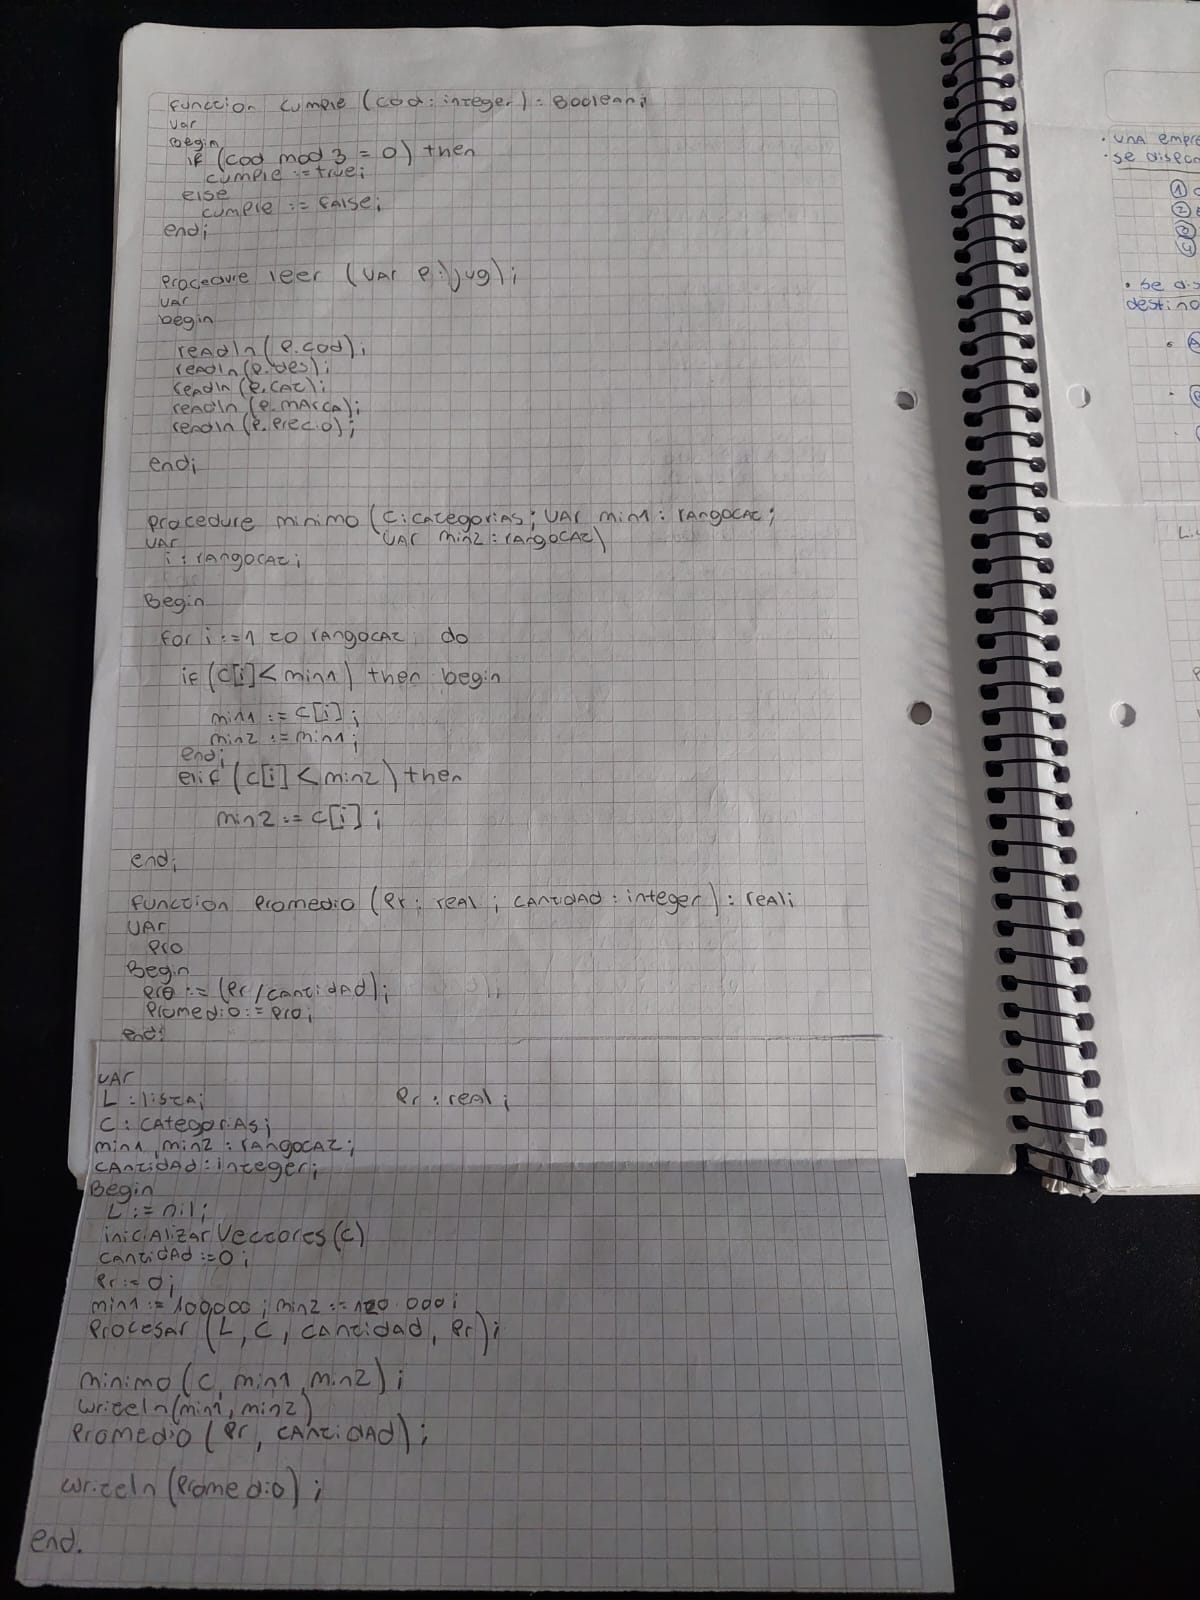 function cumple (cod: integer): Boolean;
var
begin
if (cod mod 3 = 0) then
cumple := true;
else
cumple := false;
end;
Procedure leer (var p: jug);
var
begin
readln (p.cod);
readln (p.des);
readln (p.cat);
readln (p.marca);
readln (p.precio);
end;
procedure minimo (c: categorias; var min1: rangocat;
var min2: rangocat)
var
i: rangocat;
Begin
for i := 1 to rangocat do
if (c[i] < min1) then begin
min1 := c[i];
min2 := min1;
end;
elif (c[i] < min2) then
min2 := c[i];
end;
function promedio (pr: real; cantidad: integer): real;
var
pro
Begin
pro := (pr/cantidad);
Promedio := pro;
end;
var
L: lista; pr: real;
C: categorias;
min1, min2: rangocat;
cantidad: integer;
Begin
L := nil;
inicializar Vectores (c)
cantidad := 0;
pr := 0;
min1 := 100000; min2 := 120.000;
Procesar (L, C, cantidad, pr);
minimo (c, min1, min2);
writeln (min1, min2)
Promedio (pr, cantidad);
writeln (promedio);
end.
· una empre
· se dispon
①
②
③
④
• se dis
destino